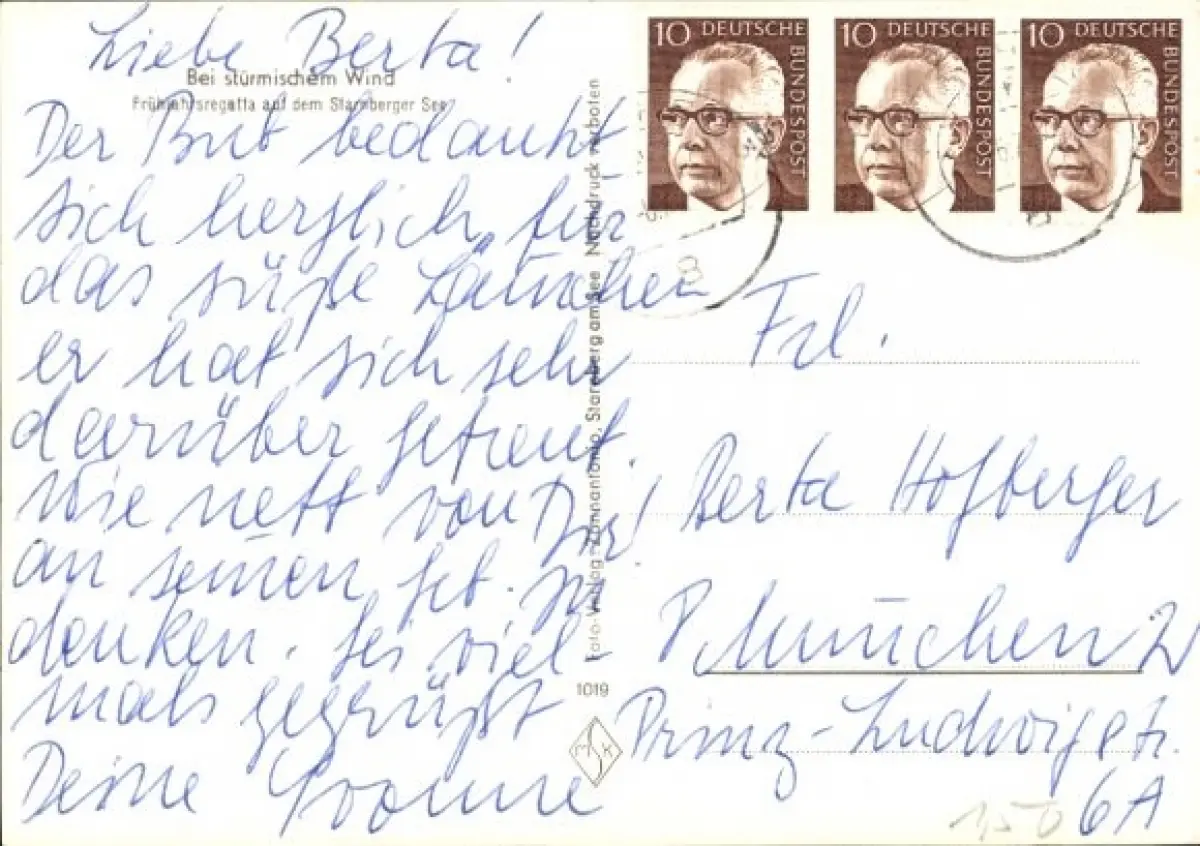 Liebe Berta!
Bei stürmischem Wind
Frühjahrsregatta auf dem Starnberger See
Der Bub bedankt
sich herzlich für
das süße Lämchen
er hat sich sehr
darüber gefreut.
Wie nett von Dir!
an seinen Geb. zu
denken. Sei viel-
mals gegrüßt
Deine Yvonne
Foto-Verlag Zannantonio, Starnberg am See Nachdruck verboten
1019
MSK
10 DEUTSCHE BUNDESPOST
10 DEUTSCHE BUNDESPOST
10 DEUTSCHE BUNDESPOST
8
Frl.
Berta Hofberger
München 2
Prinz-Ludwigstr.
6A
150